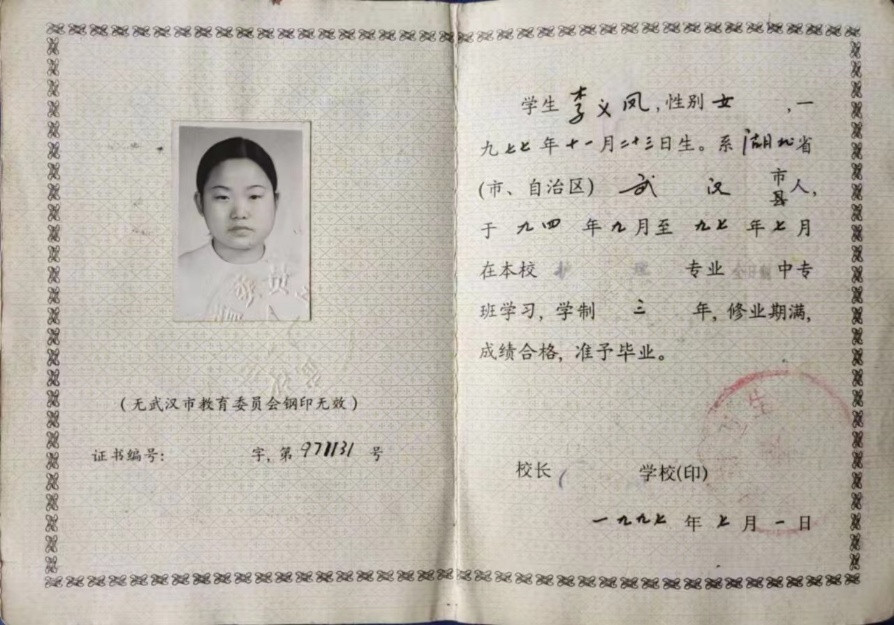 (无武汉市教育委员会钢印无效)
证书编号: 字, 第971131号
学生李义凤, 性别女, 一
九七七年十一月二十三日生。系湖北省
(市、自治区) 武汉市县人,
于九四年九月至九七年七月
在本校护理专业全日制中专
班学习, 学制三年, 修业期满,
成绩合格, 准予毕业。
校长 学校(印)
一九九七年七月一日